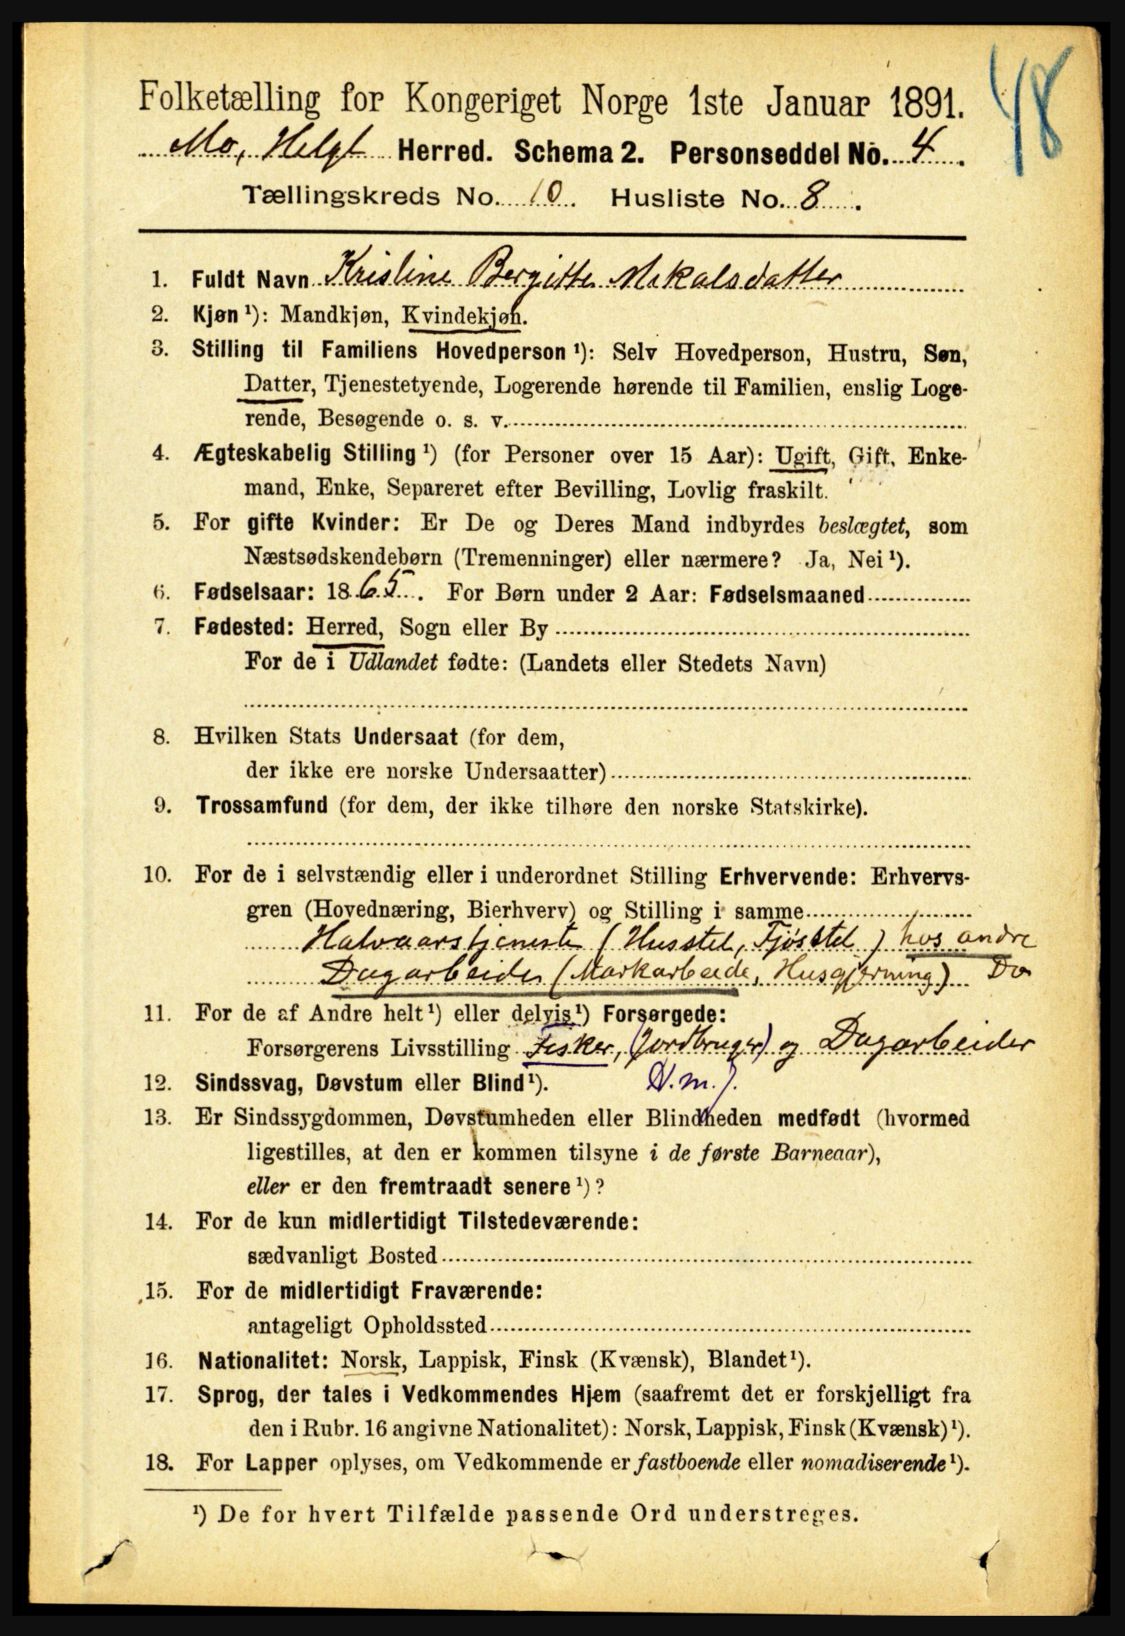 48
Folketælling for Kongeriget Norge 1ste Januar 1891.
Mo, Helgl Herred. Schema 2. Personseddel No. 4.
Tællingskreds No. 10. Husliste No. 8.
1. Fuldt Navn Kristine Bergitte Mikalsdatter
2. Kjøn ¹): Mandkjøn, Kvindekjøn.
3. Stilling til Familiens Hovedperson ¹): Selv Hovedperson, Hustru, Søn,
Datter, Tjenestetyende, Logerende hørende til Familien, enslig Loge-
rende, Besøgende o. s. v.
4. Ægteskabelig Stilling ¹) (for Personer over 15 Aar): Ugift, Gift, Enke-
mand, Enke, Separeret efter Bevilling, Lovlig fraskilt.
5. For gifte Kvinder: Er De og Deres Mand indbyrdes beslægtet, som
Næstsødskendebørn (Tremenninger) eller nærmere? Ja, Nei ¹).
6. Fødselsaar: 1865. For Børn under 2 Aar: Fødselsmaaned
7. Fødested: Herred, Sogn eller By
For de i Udlandet fødte: (Landets eller Stedets Navn)
8. Hvilken Stats Undersaat (for dem,
der ikke ere norske Undersaatter)
9. Trossamfund (for dem, der ikke tilhøre den norske Statskirke).
10. For de i selvstændig eller i underordnet Stilling Erhvervende: Erhvervs-
gren (Hovednæring, Bierhverv) og Stilling i samme
Halvaarstjeneste (Husstel, Fjøsstel) hos andre
Dagarbeider (Markarbeide, Husgjerning) Do
11. For de af Andre helt ¹) eller delvis ¹) Forsørgede:
Forsørgerens Livsstilling Fisker, (Jordbruger) og Dagarbeider
12. Sindssvag, Døvstum eller Blind ¹). (V. m.).
13. Er Sindssygdommen, Døvstumheden eller Blindheden medfødt (hvormed
ligestilles, at den er kommen tilsyne i de første Barneaar),
eller er den fremtraadt senere ¹)?
14. For de kun midlertidigt Tilstedeværende:
sædvanligt Bosted
15. For de midlertidigt Fraværende:
antageligt Opholdssted
16. Nationalitet: Norsk, Lappisk, Finsk (Kvænsk), Blandet ¹).
17. Sprog, der tales i Vedkommendes Hjem (saafremt det er forskjelligt fra
den i Rubr. 16 angivne Nationalitet): Norsk, Lappisk, Finsk (Kvænsk) ¹).
18. For Lapper oplyses, om Vedkommende er fastboende eller nomadiserende ¹).
¹) De for hvert Tilfælde passende Ord understreges.